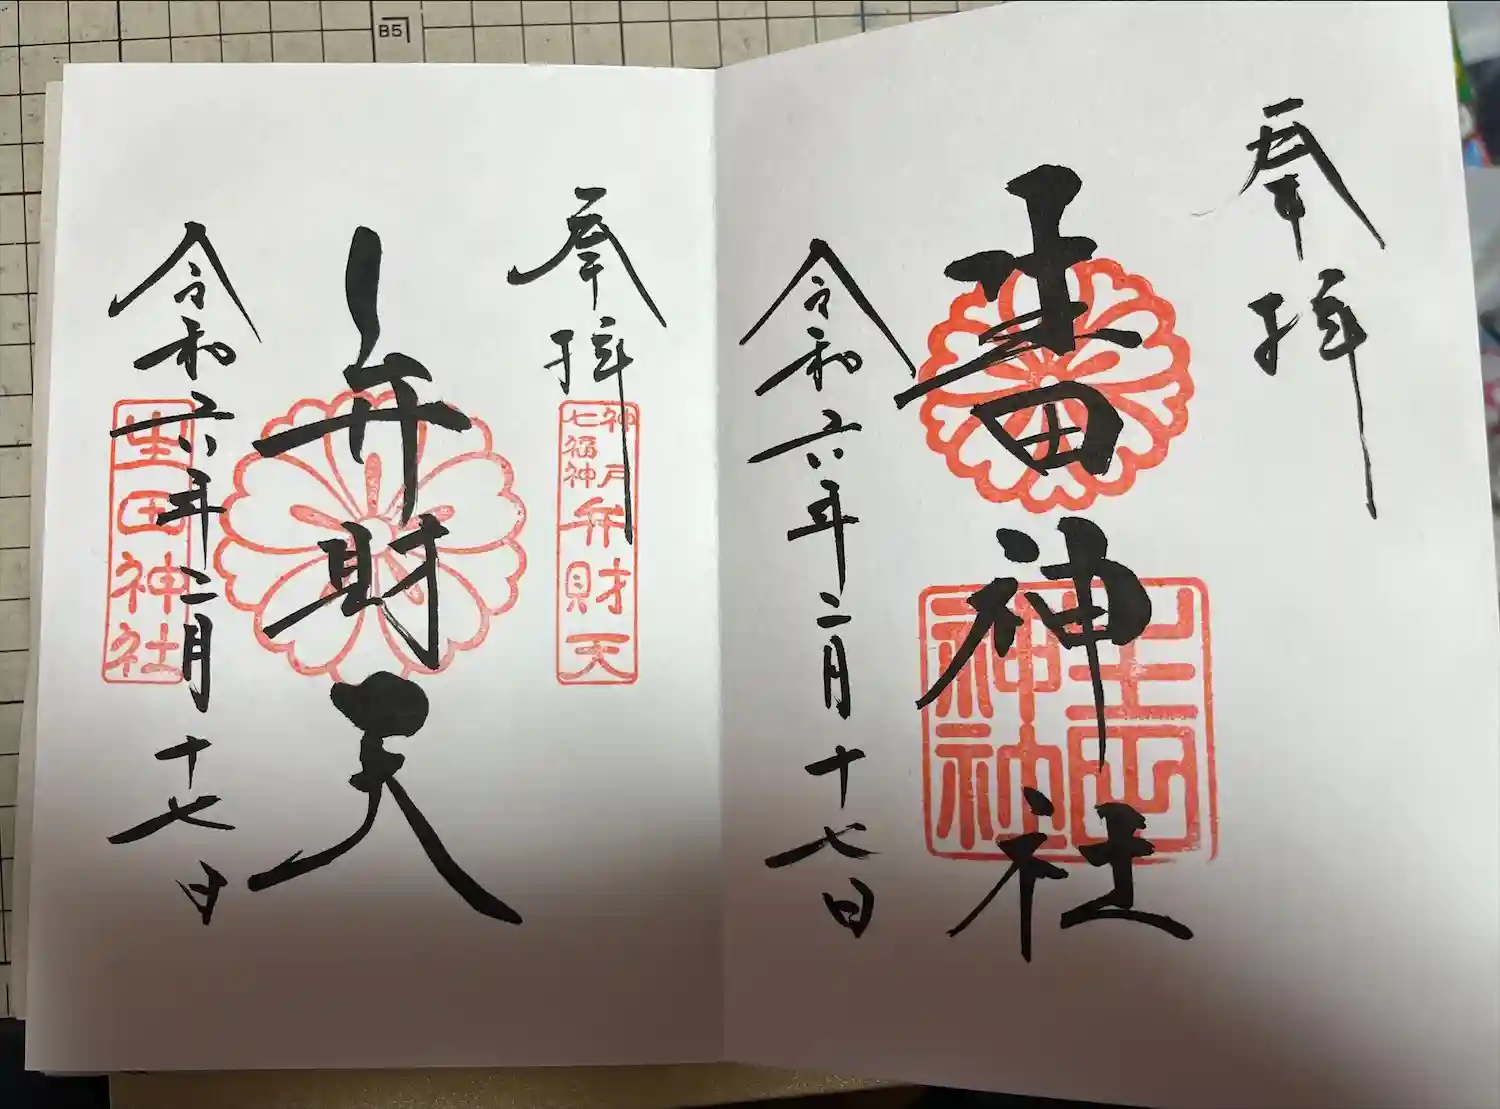 B5
奉拝
生田神社
生田神社
令和六年二月十七日
奉拝
神戸七福神弁財天
弁財天
令和六年二月十七日
生田神社